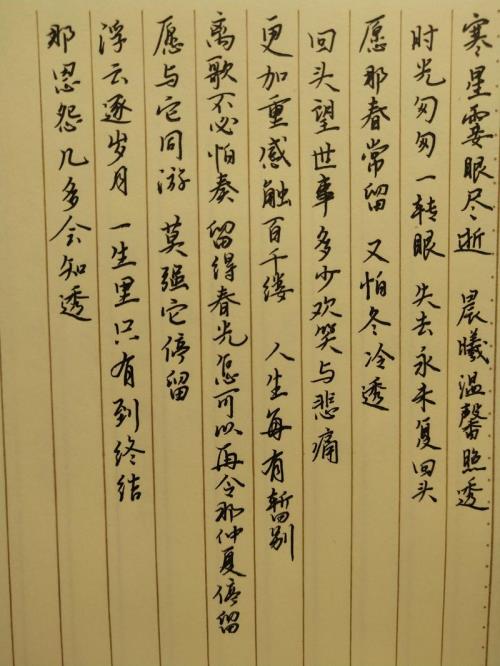 寒星霎眼尽逝 晨曦温馨照透
时光匆匆一转眼 失去永未复回头
愿那春常留 又怕冬冷透
回头望世事多少欢笑与悲痛
更加重感触百千缕 人生每有暂别
离歌不必怕奏 留得春光怎可以再令那仲夏停留
愿与它同游 莫强它停留
浮云逐岁月 一生里只有到终结
那恩怨几多会知透